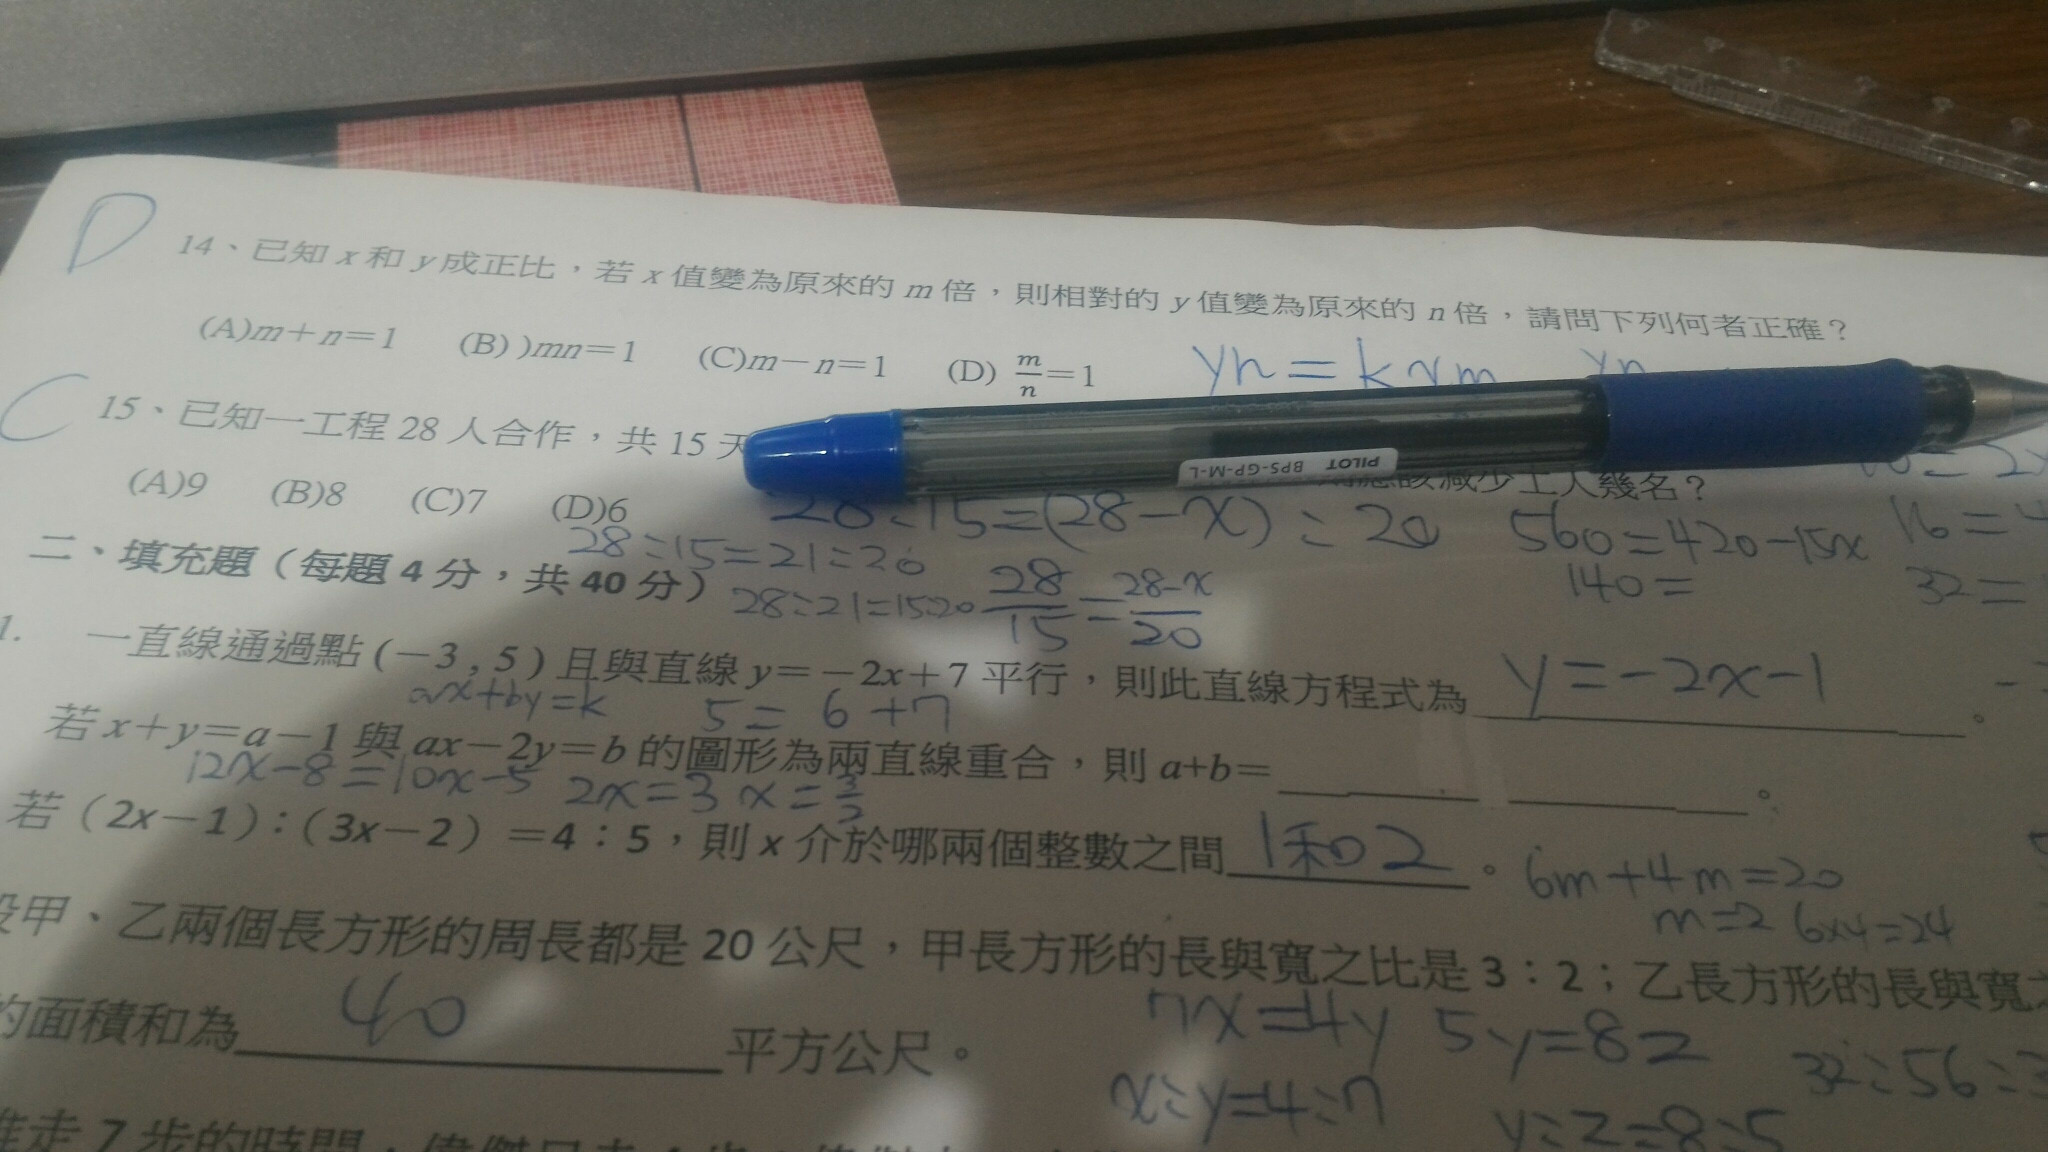 D
14、已知 x 和 y 成正比，若 x 值變為原來的 m 倍，則相對的 y 值變為原來的 n 倍，請問下列何者正確？
(A)m＋n＝1 (B) )mn＝1 (C)m－n＝1 (D) m/n＝1
yn = kxm yn
C
15、已知一工程 28 人合作，共 15 天
減少工人幾名？
(A)9 (B)8 (C)7 (D)6
PILOT BPS-GP-M-L
28:15=(28-x):20
560=420-15x
16=4
28:15=21:20
140=
32=
二、填充題（每題 4 分，共 40 分）
28:21=15:20
28/15=28-x/20
1. 一直線通過點 (－3 , 5 ) 且與直線 y＝－2x＋7 平行，則此直線方程式為 y=-2x-1 。
ax+by=k
5= 6+7
若 x＋y＝a－1 與 ax－2y＝b 的圖形為兩直線重合，則 a+b＝ 。
12x-8=10x-5 2x=3 x=3/2
若（2x－1）：（3x－2）＝4：5，則 x 介於哪兩個整數之間 1和2 。
6m+4m=20
m=2 6x4=24
設甲、乙兩個長方形的周長都是 20 公尺，甲長方形的長與寬之比是 3：2；乙長方形的長與寬之
的面積和為 40 平方公尺。
7x=4y 5y=8z
32:56:3
x:y=4:7
y:z=8:5
走 7 步的時間，